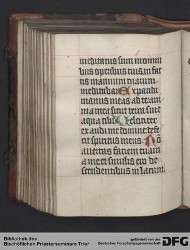 meditatus sum in omni
bus operibus tuis in fac
tis manuum tuarum
meditabar Expandi
manus meas ad te ani
ma mea sicut terra sine
aqua tibi Velociter
exaudi me domine defe
cit spiritus meus N
avertas faciem tuam
a me et similis ero de
scendentibus in lacum
Bibliothek des
Bischöflichen Priesterseminars Trier
gefördert von der
Deutschen Forschungsgemeinschaft
DFG